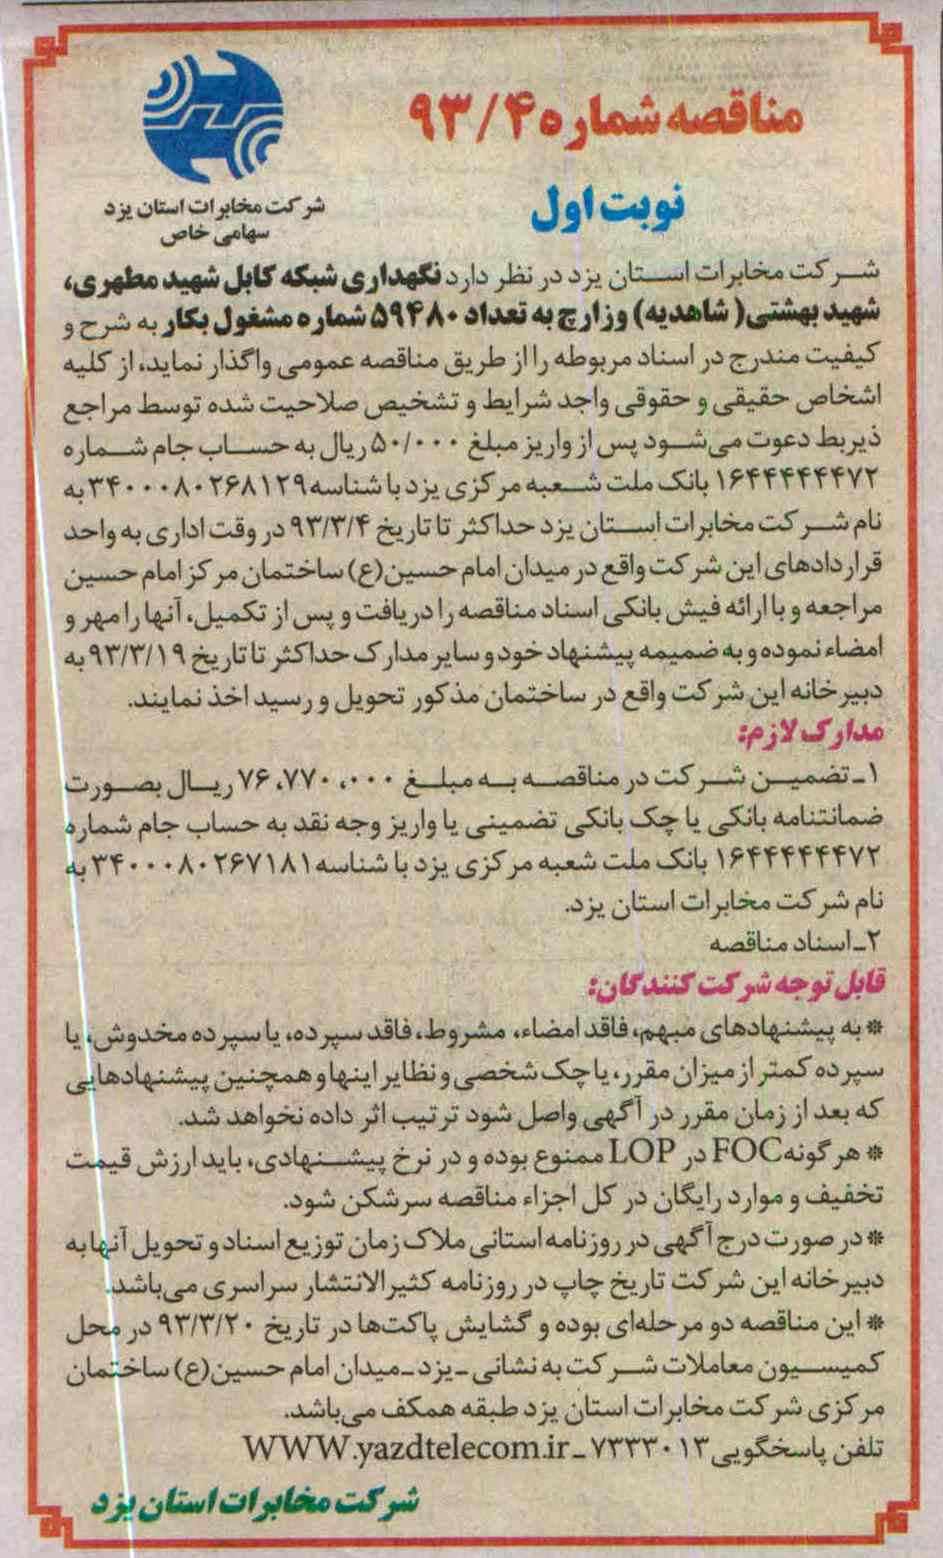 مناقصه شماره ۹۳/۴
نوبت اول
شرکت مخابرات استان یزد
سهامی خاص
شرکت مخابرات استان یزد در نظر دارد نگهداری شبکه کابل شهید مطهری،
شهید بهشتی( شاهدیه) وزارچ به تعداد ۵۹۴۸۰ شماره مشغول بکار به شرح و
کیفیت مندرج در اسناد مربوطه را از طریق مناقصه عمومی واگذار نماید، از کلیه
اشخاص حقیقی و حقوقی واجد شرایط و تشخیص صلاحیت شده توسط مراجع
ذیربط دعوت می‌شود پس از واریز مبلغ ۵۰/۰۰۰ ریال به حساب جام شماره
۱۶۴۴۴۴۴۴۷۲ بانک ملت شعبه مرکزی یزد با شناسه ۳۴۰۰۰۸۰۲۶۸۱۲۹ به
نام شرکت مخابرات استان یزد حداکثر تا تاریخ ۹۳/۳/۴ در وقت اداری به واحد
قراردادهای این شرکت واقع در میدان امام حسین(ع) ساختمان مرکز امام حسین
مراجعه و با ارائه فیش بانکی اسناد مناقصه را دریافت و پس از تکمیل، آنها را مهر و
امضاء نموده و به ضمیمه پیشنهاد خود و سایر مدارک حداکثر تا تاریخ ۹۳/۳/۱۹ به
دبیرخانه این شرکت واقع در ساختمان مذکور تحویل و رسید اخذ نمایند.
مدارک لازم:
۱ـ تضمین شرکت در مناقصه به مبلغ ۷۶،۷۷۰،۰۰۰ ریال بصورت
ضمانتنامه بانکی یا چک بانکی تضمینی یا واریز وجه نقد به حساب جام شماره
۱۶۴۴۴۴۴۴۷۲ بانک ملت شعبه مرکزی یزد با شناسه ۳۴۰۰۰۸۰۲۶۷۱۸۱ به
نام شرکت مخابرات استان یزد.
۲ـ اسناد مناقصه
قابل توجه شرکت کنندگان:
* به پیشنهادهای مبهم، فاقد امضاء، مشروط، فاقد سپرده، یا سپرده مخدوش، یا
سپرده کمتر از میزان مقرر، یا چک شخصی و نظایر اینها و همچنین پیشنهادهایی
که بعد از زمان مقرر در آگهی واصل شود ترتیب اثر داده نخواهد شد.
* هرگونه FOC در LOP ممنوع بوده و در نرخ پیشنهادی، باید ارزش قیمت
تخفیف و موارد رایگان در کل اجزاء مناقصه سرشکن شود.
* در صورت درج آگهی در روزنامه استانی ملاک زمان توزیع اسناد و تحویل آنها به
دبیرخانه این شرکت تاریخ چاپ در روزنامه کثیرالانتشار سراسری می‌باشد.
* این مناقصه دو مرحله‌ای بوده و گشایش پاکت‌ها در تاریخ ۹۳/۳/۲۰ در محل
کمیسیون معاملات شرکت به نشانی ـ یزد ـ میدان امام حسین(ع) ساختمان
مرکزی شرکت مخابرات استان یزد طبقه همکف می‌باشد.
تلفن پاسخگویی ۷۳۳۳۰۱۳ ـ WWW.yazdtelecom.ir
شرکت مخابرات استان یزد